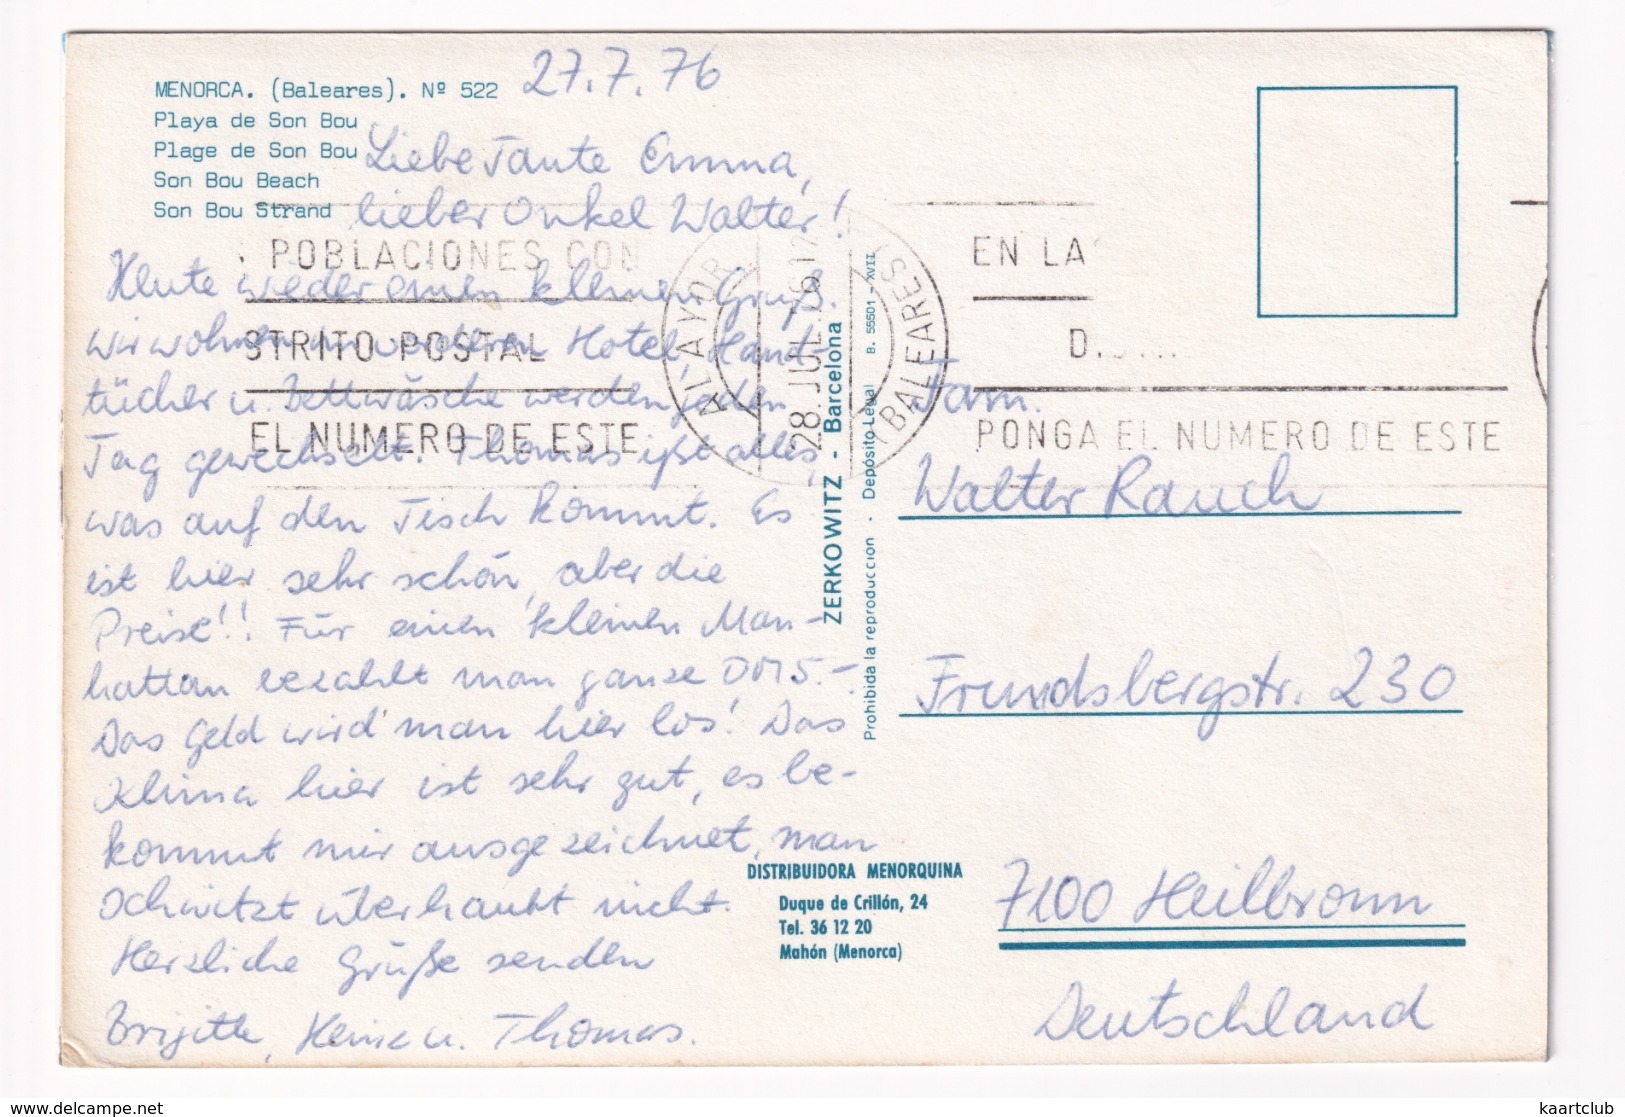 MENORCA. (Baleares). Nº 522
Playa de Son Bou
Plage de Son Bou
Son Bou Beach
Son Bou Strand
27.7.76
Liebe Tante Emma,
lieber Onkel Walter!
Heute wieder einen kleinen Gruß.
Wir wohnen in Hotel, Hand-
tücher u. Bettwäsche werden jeden
Tag gewechselt. Thomas ißt alles,
was auf den Tisch kommt. Es
ist hier sehr schön, aber die
Preise!! Für einen kleinen Man-
hattan bezahlt man ganze DM 5.-.
Das Geld wird man hier los! Das
Klima hier ist sehr gut, es be-
kommt mir ausgezeichnet, man
schwitzt überhaupt nicht.
Herzliche Grüße senden
Brigitte, Heinz u. Thomas.
POBLACIONES CON
STRITO POSTAL
EL NUMERO DE ESTE
ALAYOR
28 JUL 76
(BALEARES)
EN LA
D.
PONGA EL NUMERO DE ESTE
ZERKOWITZ - Barcelona
Prohibida la reproduccion - Depósito Legal B. 55501 - XVII
Fam.
Walter Rauch
Frundsbergstr. 230
7100 Heilbronn
Deutschland
DISTRIBUIDORA MENORQUINA
Duque de Crillón, 24
Tel. 36 12 20
Mahón (Menorca)
kaartclub